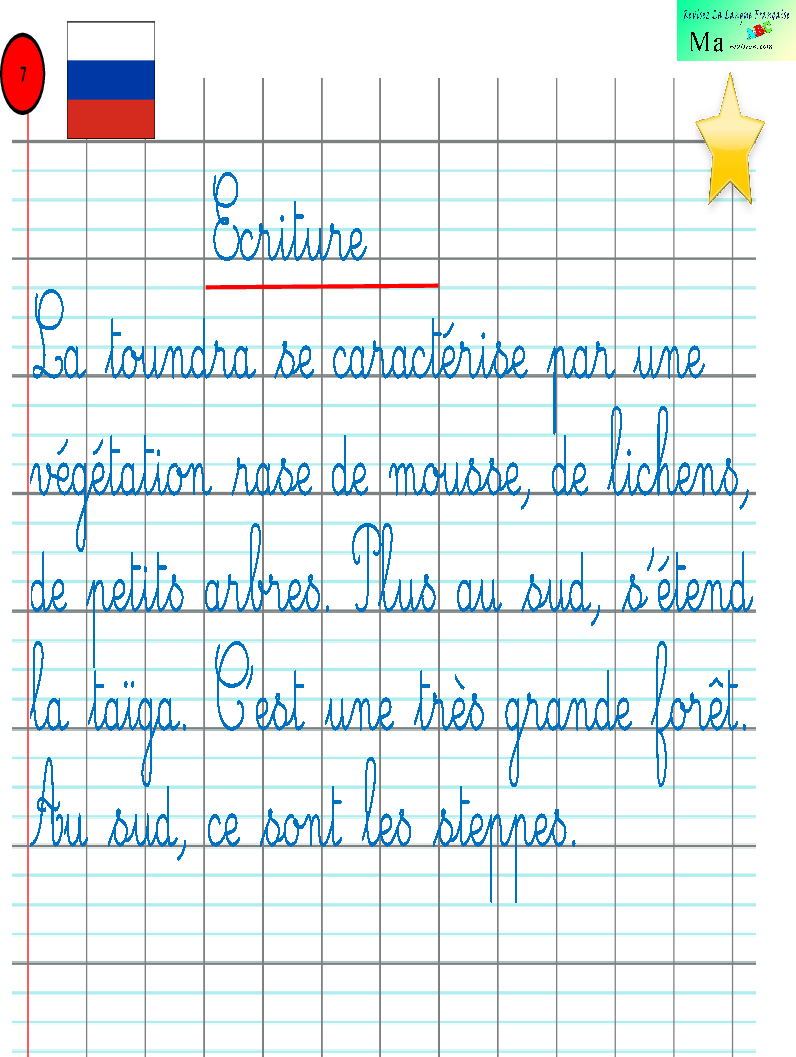 Revisez La Langue Française
Ma
revision.com
7
Ecriture
La toundra se caractérise par une
végétation rase de mousse, de lichens,
de petits arbres. Plus au sud, s'étend
la taïga. C'est une très grande forêt.
Au sud, ce sont les steppes.